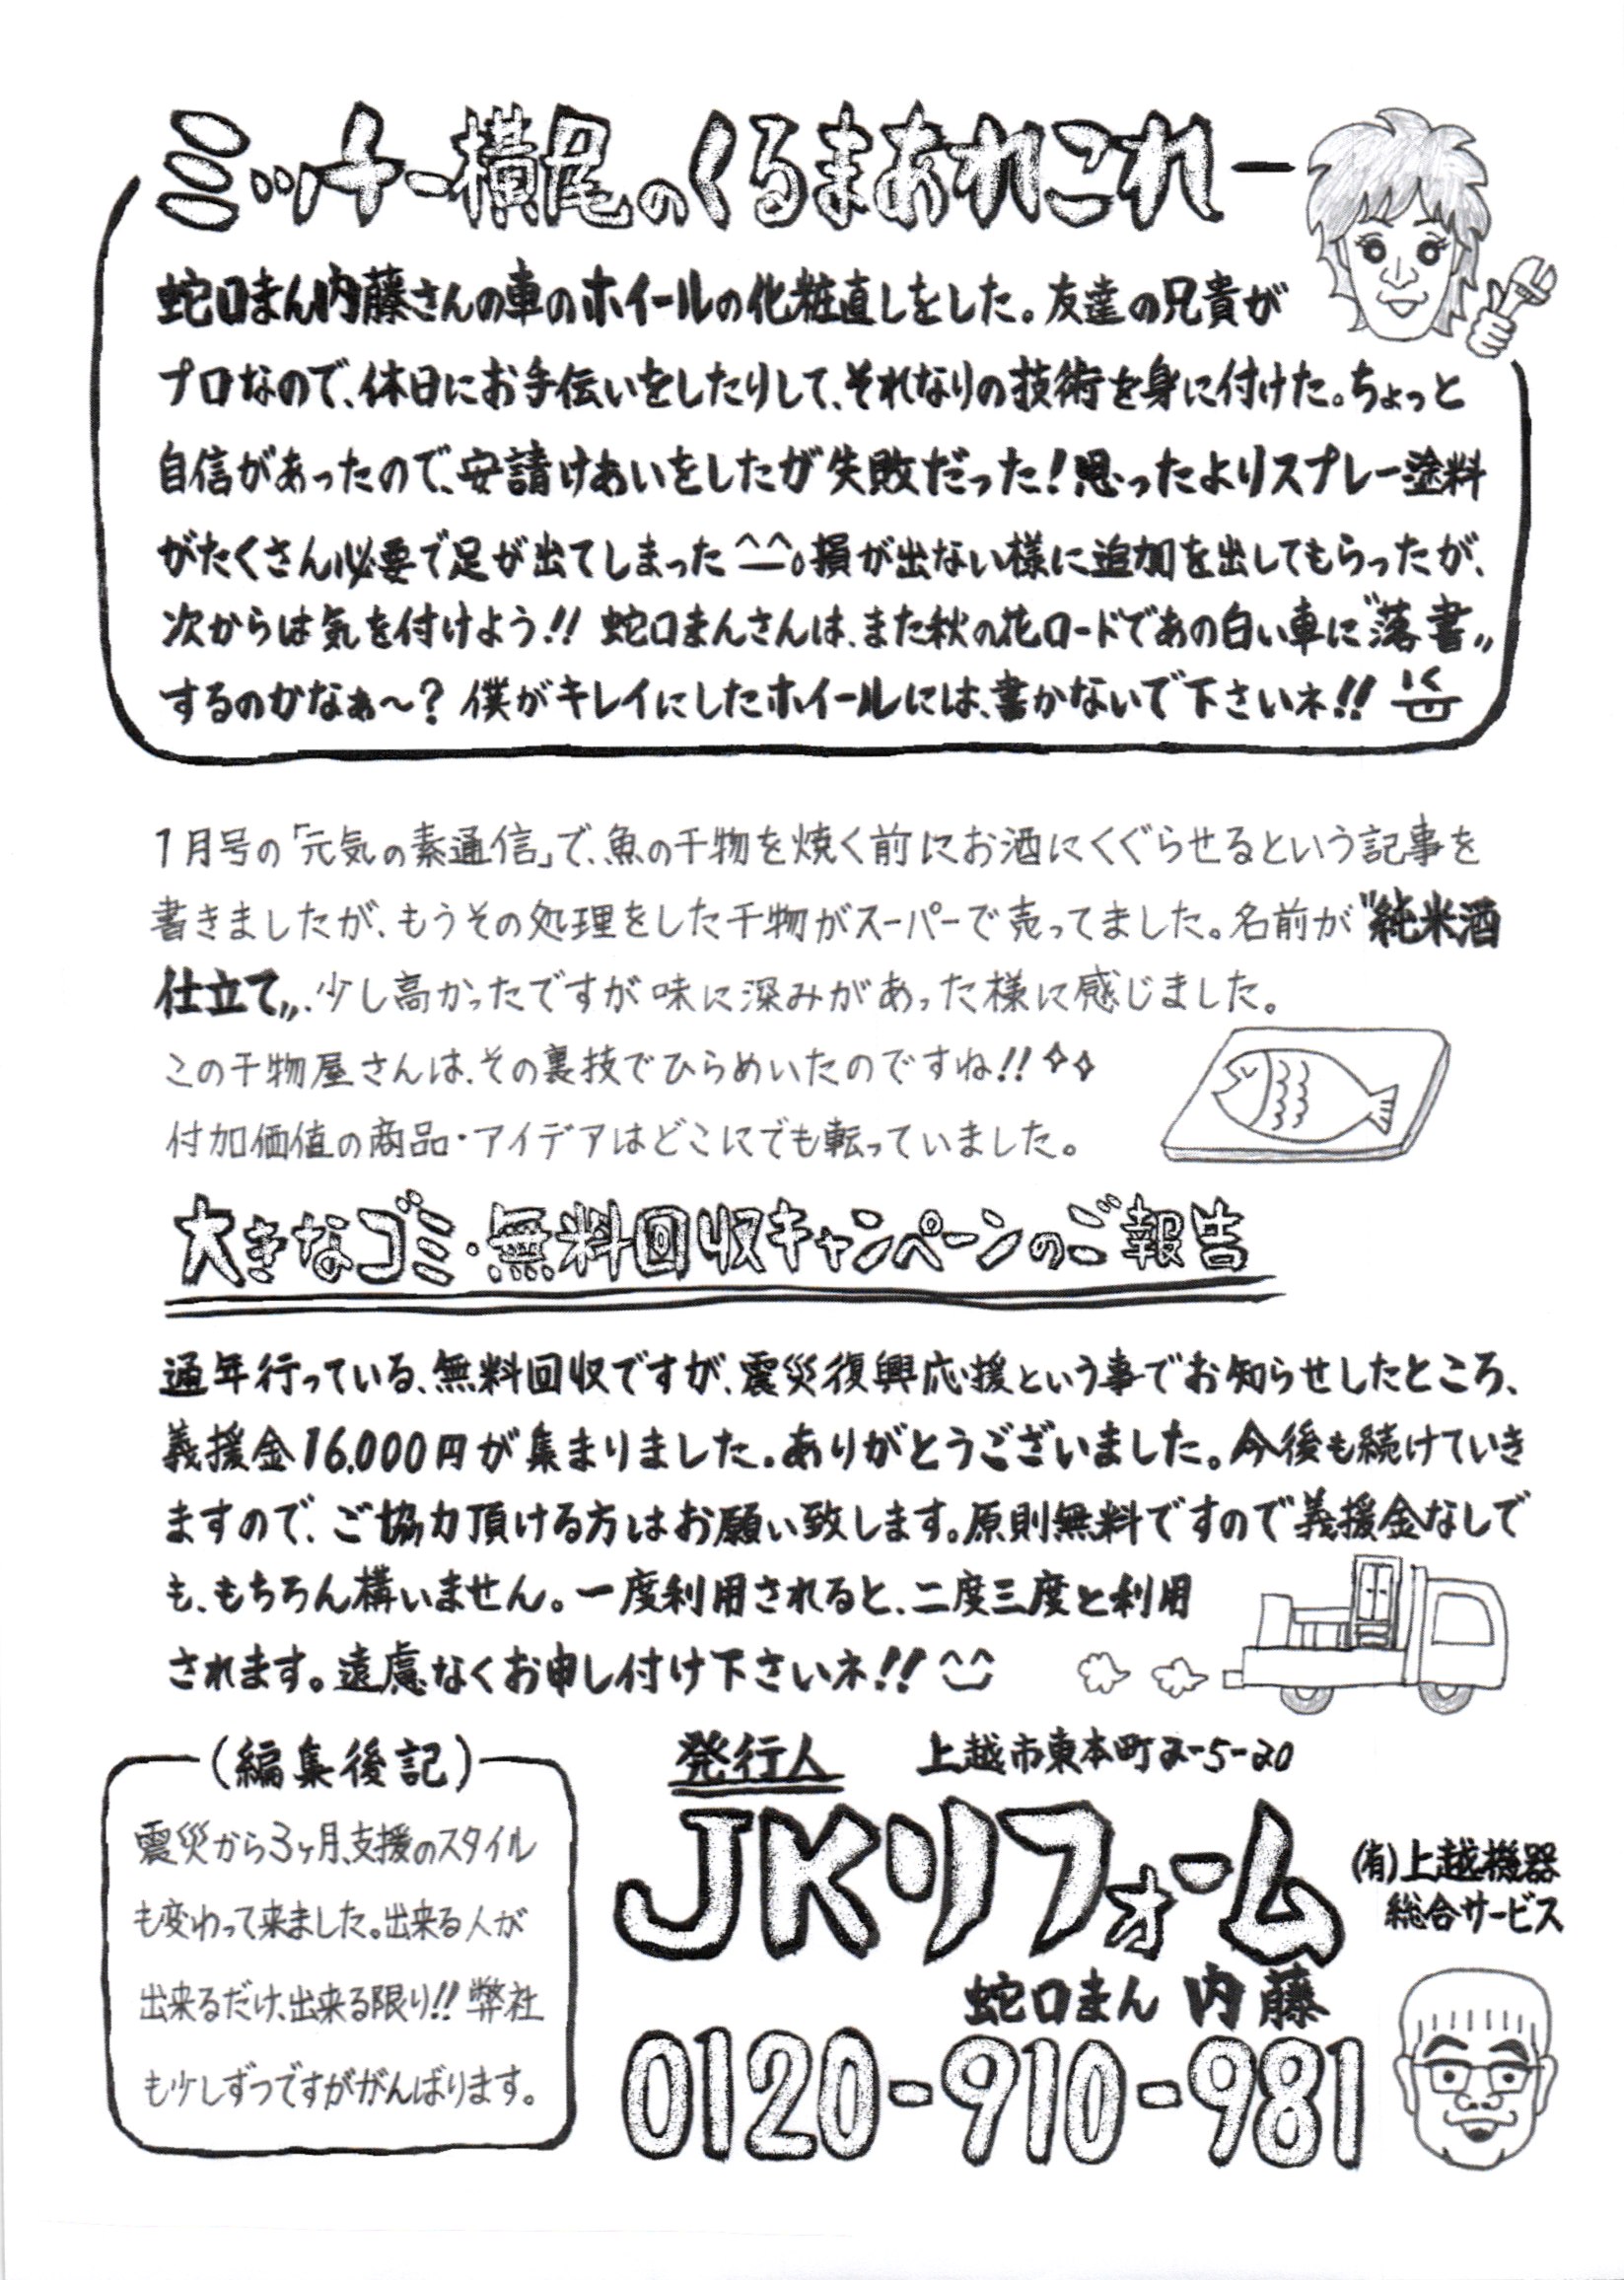 ミッチー横尾のくるまあれこれ
蛇口まん内藤さんの車のホイールの化粧直しをした。友達の兄貴が
プロなので、休日にお手伝いをしたりして、それなりの技術を身に付けた。ちょっと
自信があったので、安請けあいをしたが失敗だった！思ったよりスプレー塗料
がたくさん必要で足が出てしまった^_^。損が出ない様に追加を出してもらったが、
次からは気を付けよう!! 蛇口まんさんは、また秋の花ロードであの白い車に〝落書〟
するのかなぁ〜？ 僕がキレイにしたホイールには、書かないで下さいネ!!
1月号の「元気の素通信」で、魚の干物を焼く前にお酒にくぐらせるという記事を
書きましたが、もうその処理をした干物がスーパーで売ってました。名前が〝純米酒
仕立て〟、少し高かったですが味に深みがあった様に感じました。
この干物屋さんは、その裏技でひらめいたのですね!!
付加価値の商品・アイデアはどこにでも転っていました。
大きなゴミ・無料回収キャンペーンのご報告
通年行っている、無料回収ですが、震災復興応援という事でお知らせしたところ、
義援金16,000円が集まりました。ありがとうございました。今後も続けていき
ますので、ご協力頂ける方はお願い致します。原則無料ですので義援金なしで
も、もちろん構いません。一度利用されると、二度三度と利用
されます。遠慮なくお申し付け下さいネ!!
(編集後記)
震災から3ヶ月、支援のスタイル
も変わって来ました。出来る人が
出来るだけ、出来る限り!! 弊社
も少しずつですががんばります。
発行人 上越市東本町2-5-20
JKリフォーム
(有)上越機器
総合サービス
蛇口まん 内藤
0120-910-981